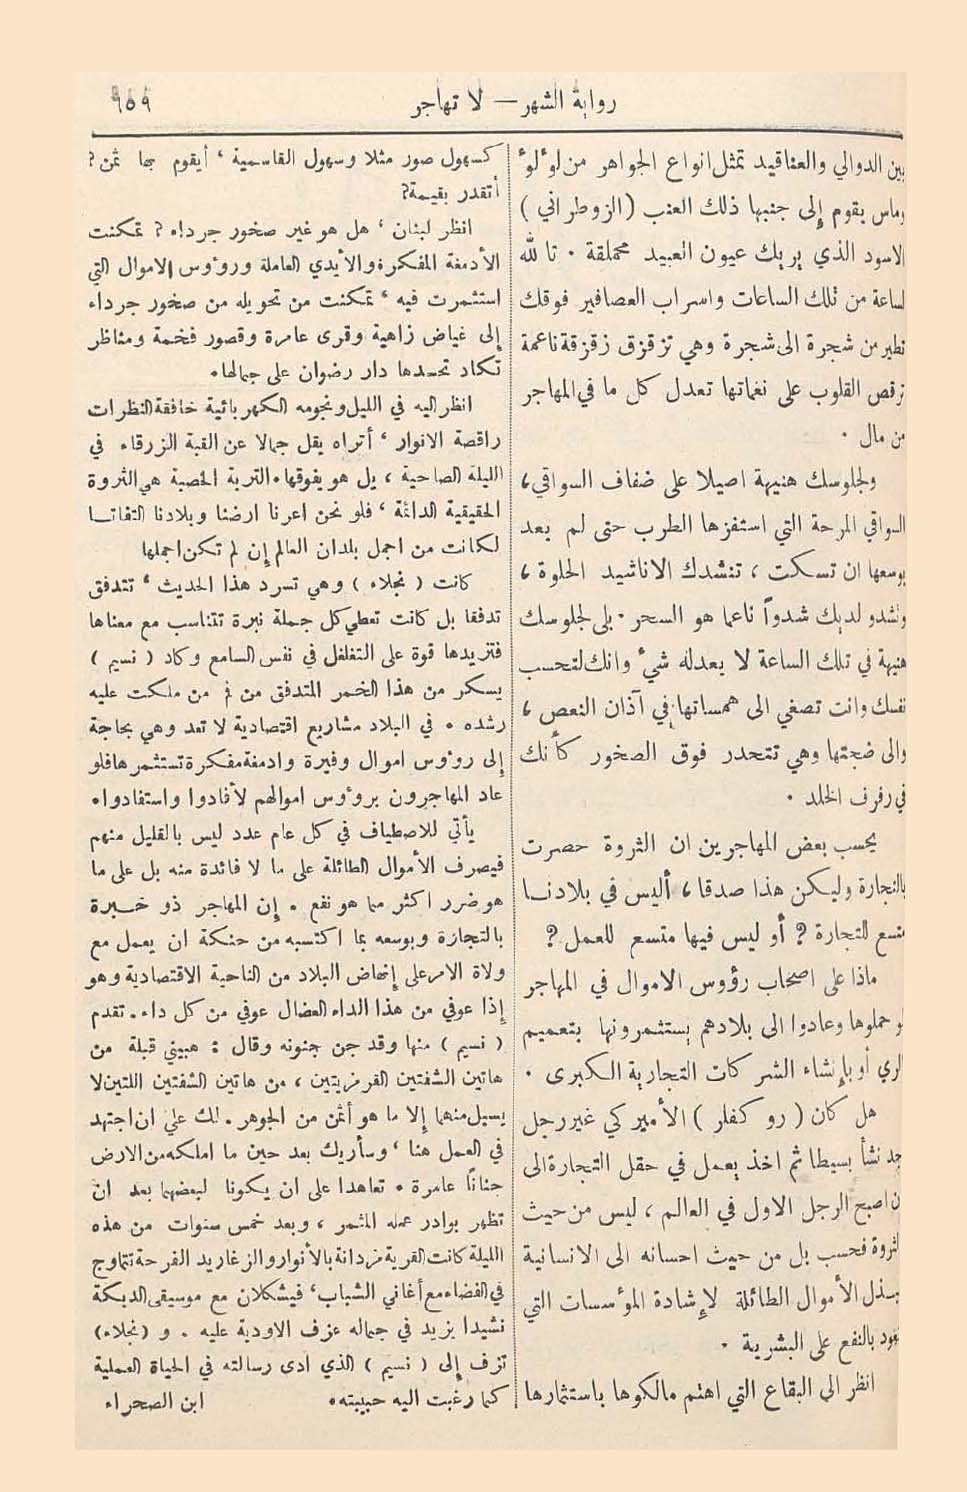 رواية الشهر — لا تهاجر
٦٥٩
بين الدوالي والعناقيد تمثل انواع الجواهر من لوٴلوٴ
وماس يقوم إلى جنبها ذلك العنب (الزوطراني)
الاسود الذي يريك عيون العبيد محملقة . تا لله
لساعة من تلك الساعات واسراب العصافير فوقك
تطير من شجرة الى شجرة وهي تزقزق زقزقة ناعمة
ترقص القلوب على نغماتها تعدل كل ما في المهاجر
من مال .
ولجلوسك هنيهة اصيلا على ضفاف السواقي ،
السواقي المرحة التي استفزها الطرب حتى لم يعد
بوسعها ان تسكت ، تنشدك الاناشيد الحلوة ،
وتشدو لديك شدواً ناعما هو السحر . بلى لجلوسك
هنيهة في تلك الساعة لا يعدله شيء وانك لتحسب
نفسك وانت تصغي الى همساتها في آذان النعص ،
والى ضجتها وهي تتحدر فوق الصخور كأنك
في رفرف الخلد .
يحسب بعض المهاجرين ان الثروة حصرت
بالتجارة وليكن هذا صدقا ، أليس في بلادنا
متسع للتجارة ? أو ليس فيها متسع للعمل ?
ماذا على اصحاب رؤوس الاموال في المهاجر
لو حملوها وعادوا الى بلادهم يستثمرونها بتعميم
الري أو بإنشاء الشركات التجارية الكبرى .
هل كان ( روكفلر ) الأميركي غير رجل
جد نشأ بسيطا ثم اخذ يعمل في حقل التجارة الى
ان اصبح الرجل الاول في العالم ، ليس من حيث
الثروة فحسب بل من حيث احسانه الى الانسانية
ببذل الأموال الطائلة لإشادة الموٴسسات التي
تعود بالنفع على البشرية .
انظر الى البقاع التي اهتم مالكوها باستثمارها
كسهول صور مثلا وسهول القاسمية ، أيقوم بها ثمن ?
أتقدر بقيمة ?
انظر لبنان ، هل هو غير صخور جرداء ? تمكنت
الأدمغة المفكرة والأيدي العاملة وروٴوس الاموال التي
استثمرت فيه ، تمكنت من تحويله من صخور جرداء
إلى غياض زاهية وقرى عامرة وقصور فخمة ومناظر
تكاد تحسدها دار رضوان على جمالها .
انظر اليه في الليل ونجومه الكهربائية خافقة النظرات
راقصة الانوار ، أتراه يقل جمالا عن القبة الزرقاء في
الليلة الصاحية ، بل هو يفوقها . التربة الخصبة هي الثروة
الحقيقية الدائمة ، فلو نحن اعرنا ارضنا وبلادنا التفاتا
لكانت من اجمل بلدان العالم إن لم تكن اجملها
كانت ( نجلاء ) وهي تسرد هذا الحديث ، تتدفق
تدفقا بل كانت تعطي كل جملة نبرة تتناسب مع معناها
فتزيدها قوة على التغلغل في نفس السامع وكاد ( نسيم )
يسكر من هذا الخمر المتدفق من فم من ملكت عليه
رشده . في البلاد مشاريع اقتصادية لا تعد وهي بحاجة
إلى روٴوس اموال وفيرة وادمغة مفكرة تستثمرها فلو
عاد المهاجرون بروٴوس اموالهم لأفادوا واستفادوا .
يأتي للاصطياف في كل عام عدد ليس بالقليل منهم
فيصرف الأموال الطائلة على ما لا فائدة منه بل على ما
هو ضرر اكثر مما هو نفع . إن المهاجر ذو خبرة
بالتجارة وبوسعه بما اكتسبه من حنكة ان يعمل مع
ولاة الامر على إنهاض البلاد من الناحية الاقتصادية وهو
إذا عوفي من هذا الداء العضال عوفي من كل داء . تقدم
( نسيم ) منها وقد جن جنونه وقال : هبيني قبلة من
هاتين الشفتين القرمزيتين ، من هاتين الشفتين اللتين لا
يسيل منهما إلا ما هو أثمن من الجوهر . لك علي ان اجتهد
في العمل هنا ، وسأريك بعد حين ما املكه من الارض
جنانًا عامرة . تعاهدا على ان يكونا لبعضهما بعد ان
تظهر بوادر عمله المثمر ، وبعد خمس سنوات من هذه
الليلة كانت القرية مزدانة بالأنوار والزغاريد الفرحة تتماوج
في الفضاء مع أغاني الشباب ، فيشكلان مع موسيقى الدبكة
نشيدا يزيد في جماله عزف الاودية عليه . و (نجلاء)
تزف إلى ( نسيم ) الذي ادى رسالته في الحياة العملية
كما رغبت اليه حبيبته .
ابن الصحراء